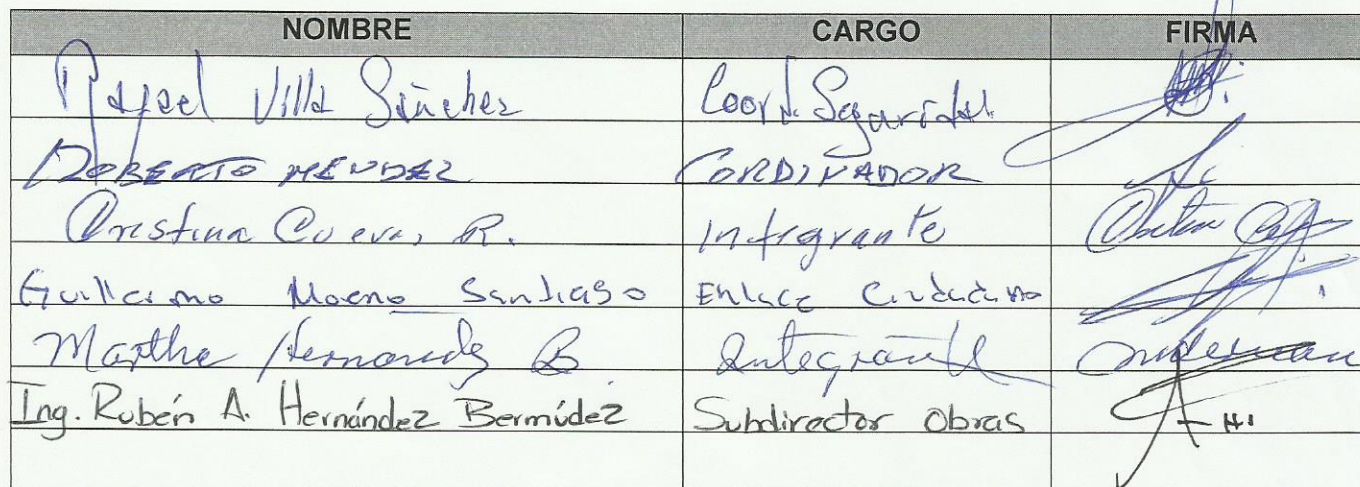 NOMBRE CARGO FIRMA
Rafael Villa Sánchez Coord. Seguridad
ROBERTO MENDEZ CORDINADOR
Cristina Cuevas R. Integrante
Guillermo Moreno Santiago Enlace Ciudadano
Martha Hernandez B Integrante
Ing. Rubén A. Hernández Bermúdez Subdirector Obras